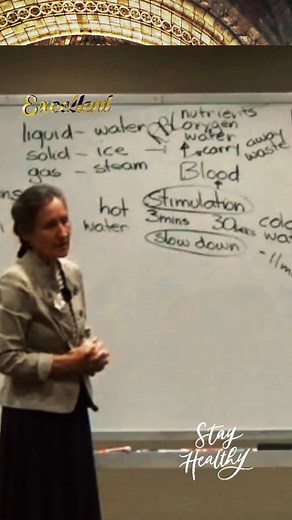 Excellent
nutrients
liquid - water oxygen
water
solid - ice → ↑ → carry away
waste
gas - steam
Blood
hot Stimulation
water 3mins 30secs
slow down
Stay
Healthy